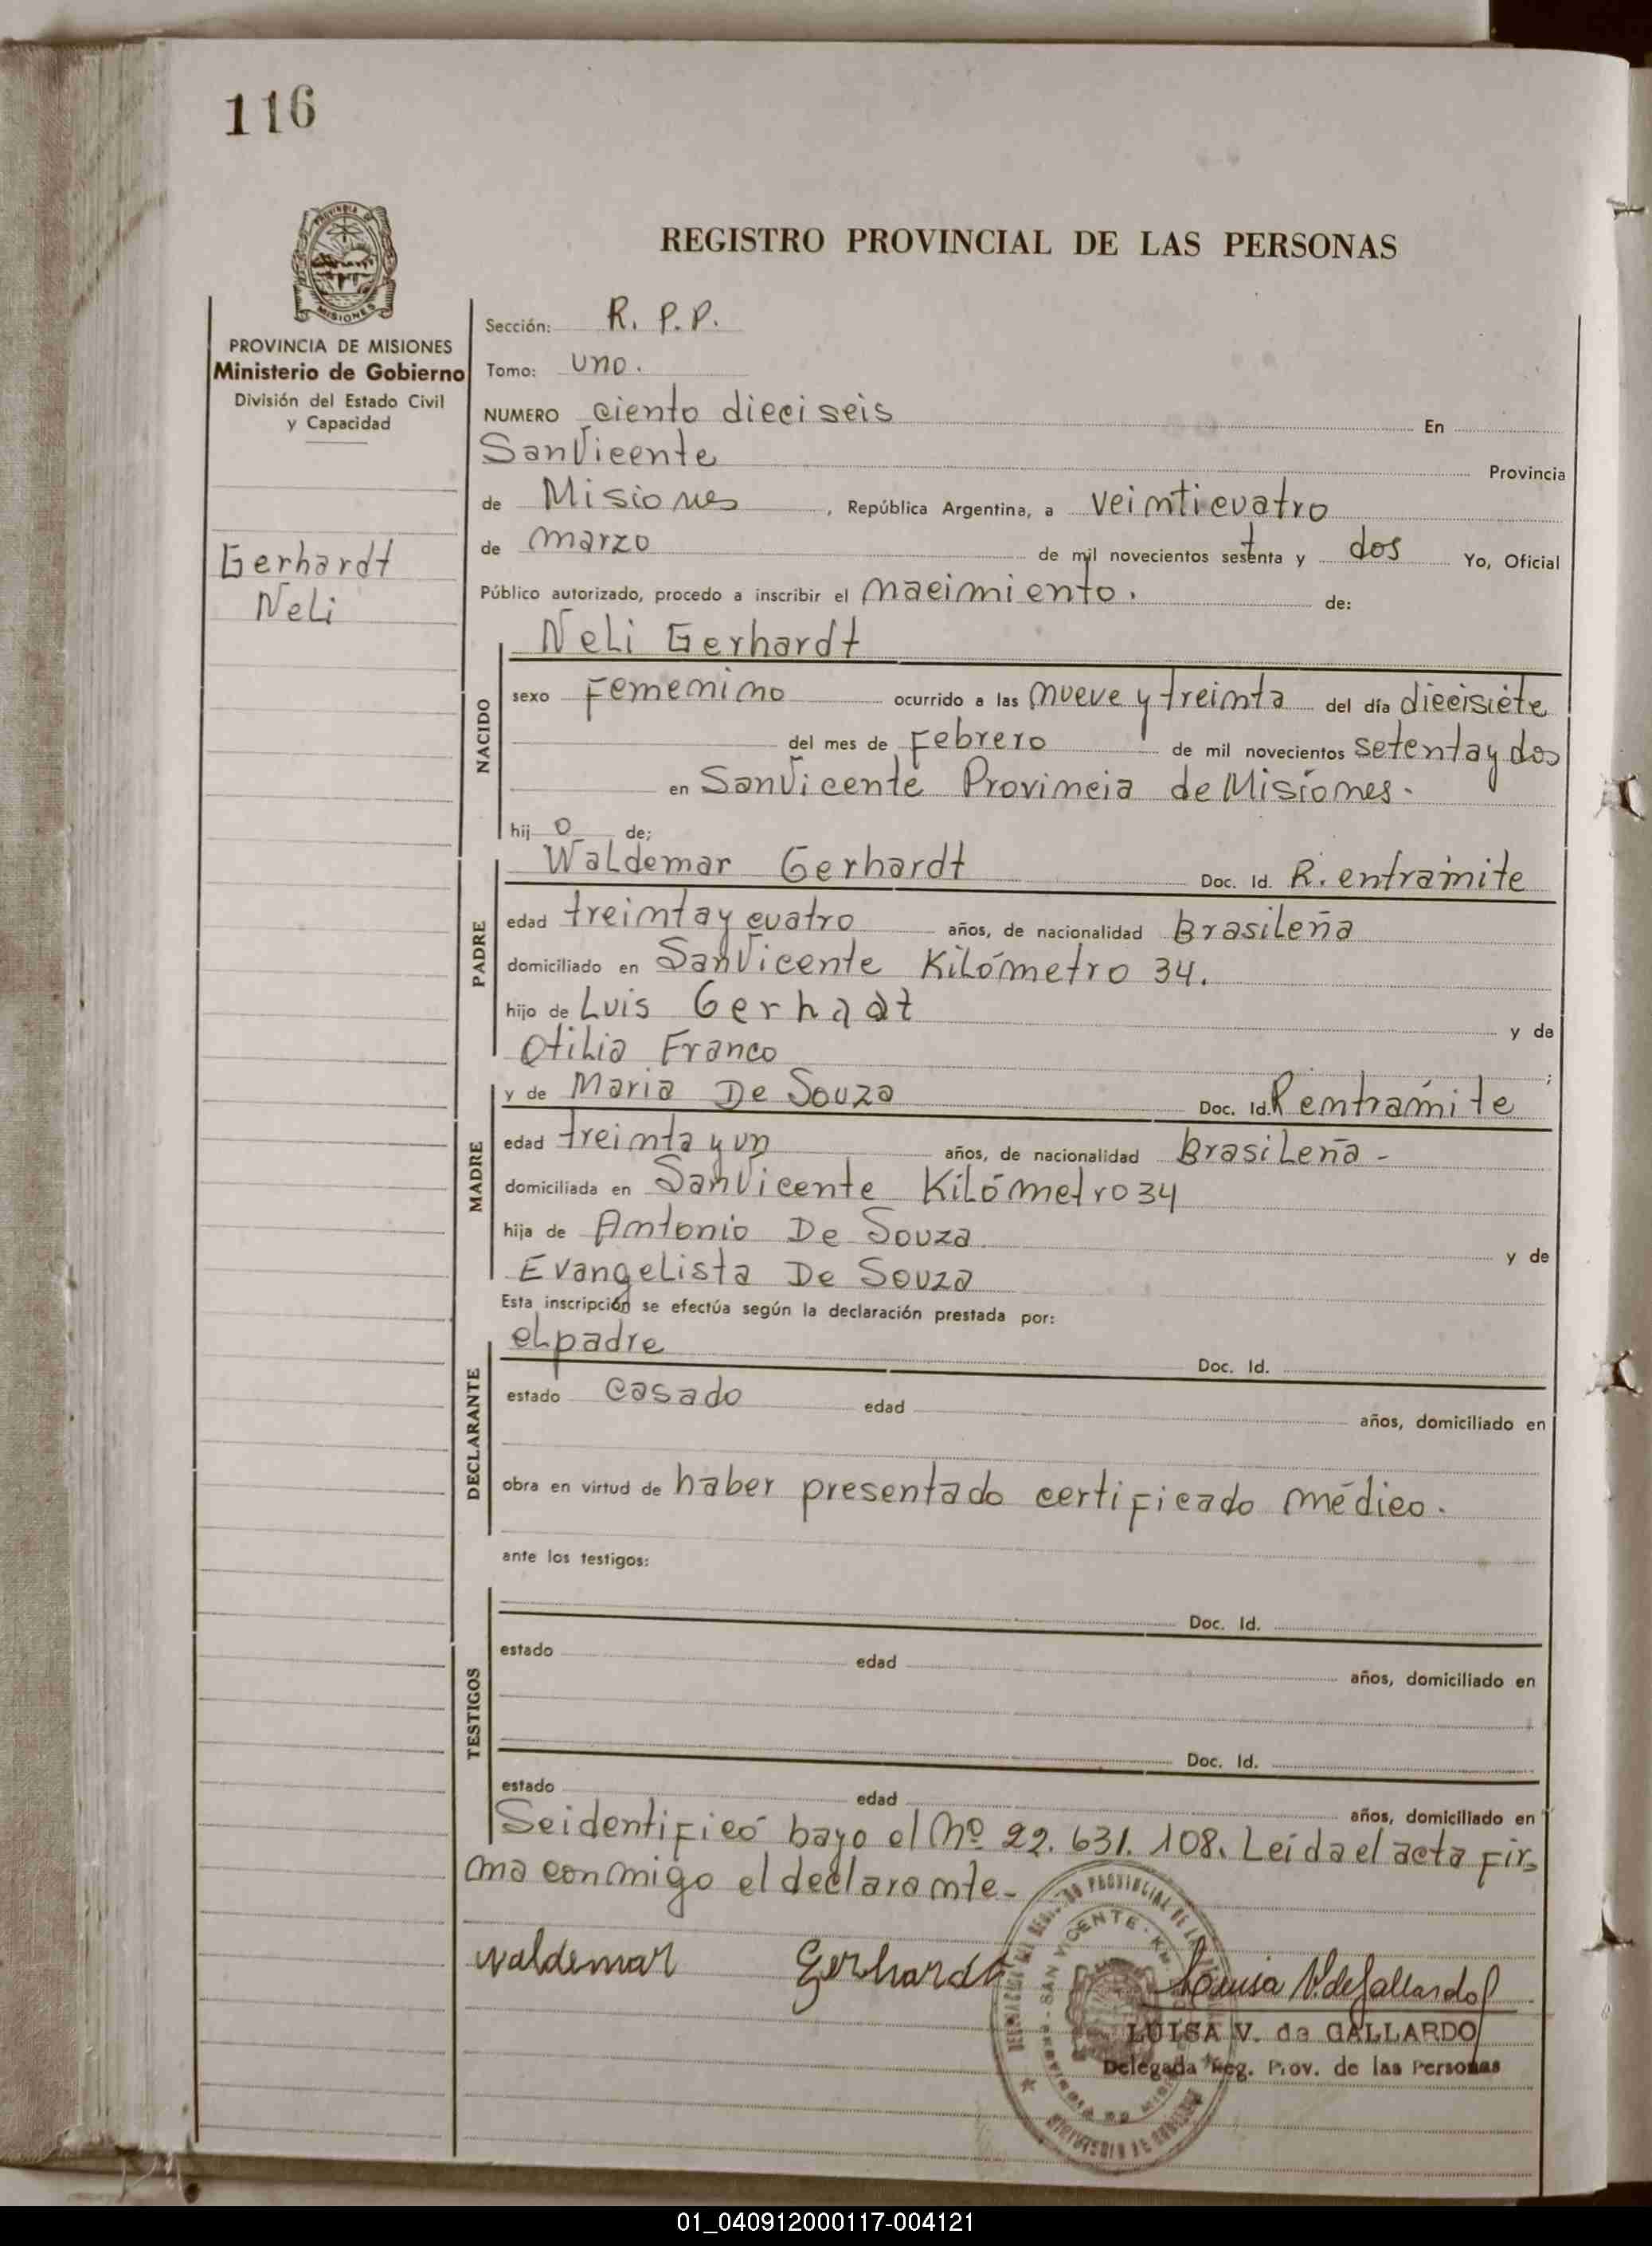 116
REGISTRO PROVINCIAL DE LAS PERSONAS
PROVINCIA DE
MISIONES
PROVINCIA DE MISIONES
Ministerio de Gobierno
División del Estado Civil
y Capacidad
Gerhardt
Neli
Sección: R. P.P.
Tomo: uno.
NUMERO ciento dieciseis En
San Vicente Provincia
de Misiones, República Argentina, a veinticuatro
de marzo de mil novecientos setenta y dos Yo, Oficial
Público autorizado, procedo a inscribir el nacimiento. de:
NACIDO
Neli Gerhardt
sexo Femenino ocurrido a las nueve y treinta del día diecisiete
del mes de Febrero de mil novecientos setenta y dos
en San Vicente Provincia de Misiones.
hij o de;
PADRE
Waldemar Gerhardt Doc. Id. R. en trámite
edad treinta y cuatro años, de nacionalidad Brasileña
domiciliado en San Vicente Kilómetro 34.
hijo de Luis Gerhadt y de
Otilia Franco ;
MADRE
y de Maria De Souza Doc. Id. R en trámite
edad treinta y un años, de nacionalidad Brasileña -
domiciliada en San Vicente Kilómetro 34
hija de Antonio De Souza y de
Evangelista De Souza
Esta inscripción se efectúa según la declaración prestada por:
DECLARANTE
el padre Doc. Id.
estado casado edad años, domiciliado en
obra en virtud de haber presentado certificado médico.
ante los testigos:
TESTIGOS
Doc. Id.
estado edad años, domiciliado en
Doc. Id.
estado edad años, domiciliado en
Se identificó bayo el Nº 22. 631. 108. Leída el acta fir-
ma conmigo el declarante-
Waldemar Gerhardt Luisa V. de Gallardo
SAN VICENTE
LUISA V. de GALLARDO
Delegada Reg. Prov. de las Personas
01_040912000117-004121